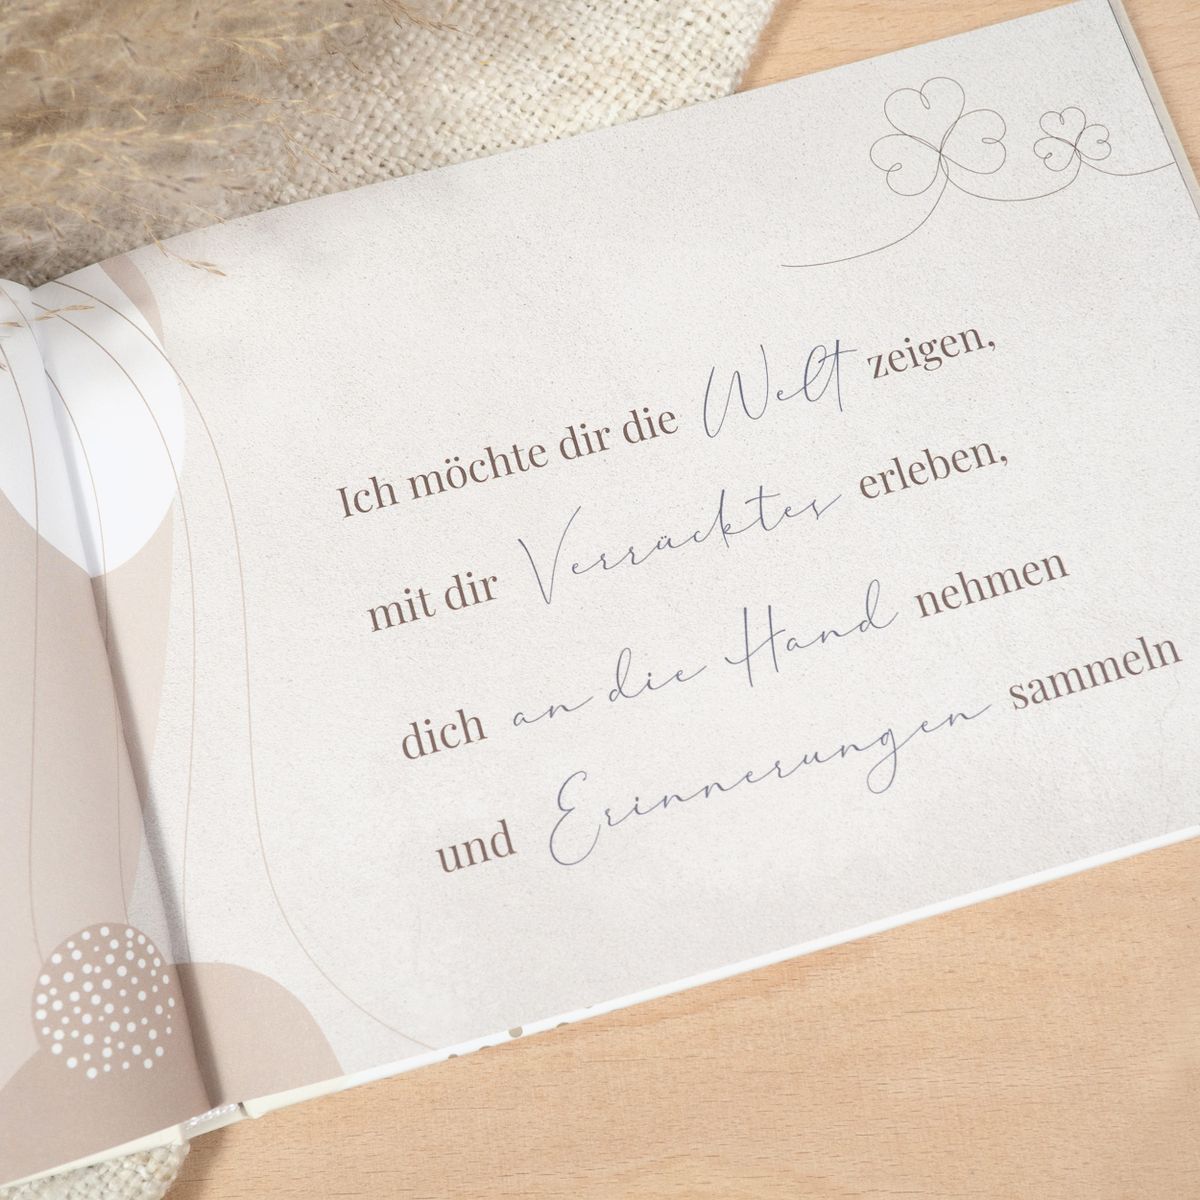 Ich möchte dir die Welt zeigen,
mit dir Verrücktes erleben,
dich an die Hand nehmen
und Erinnerungen sammeln